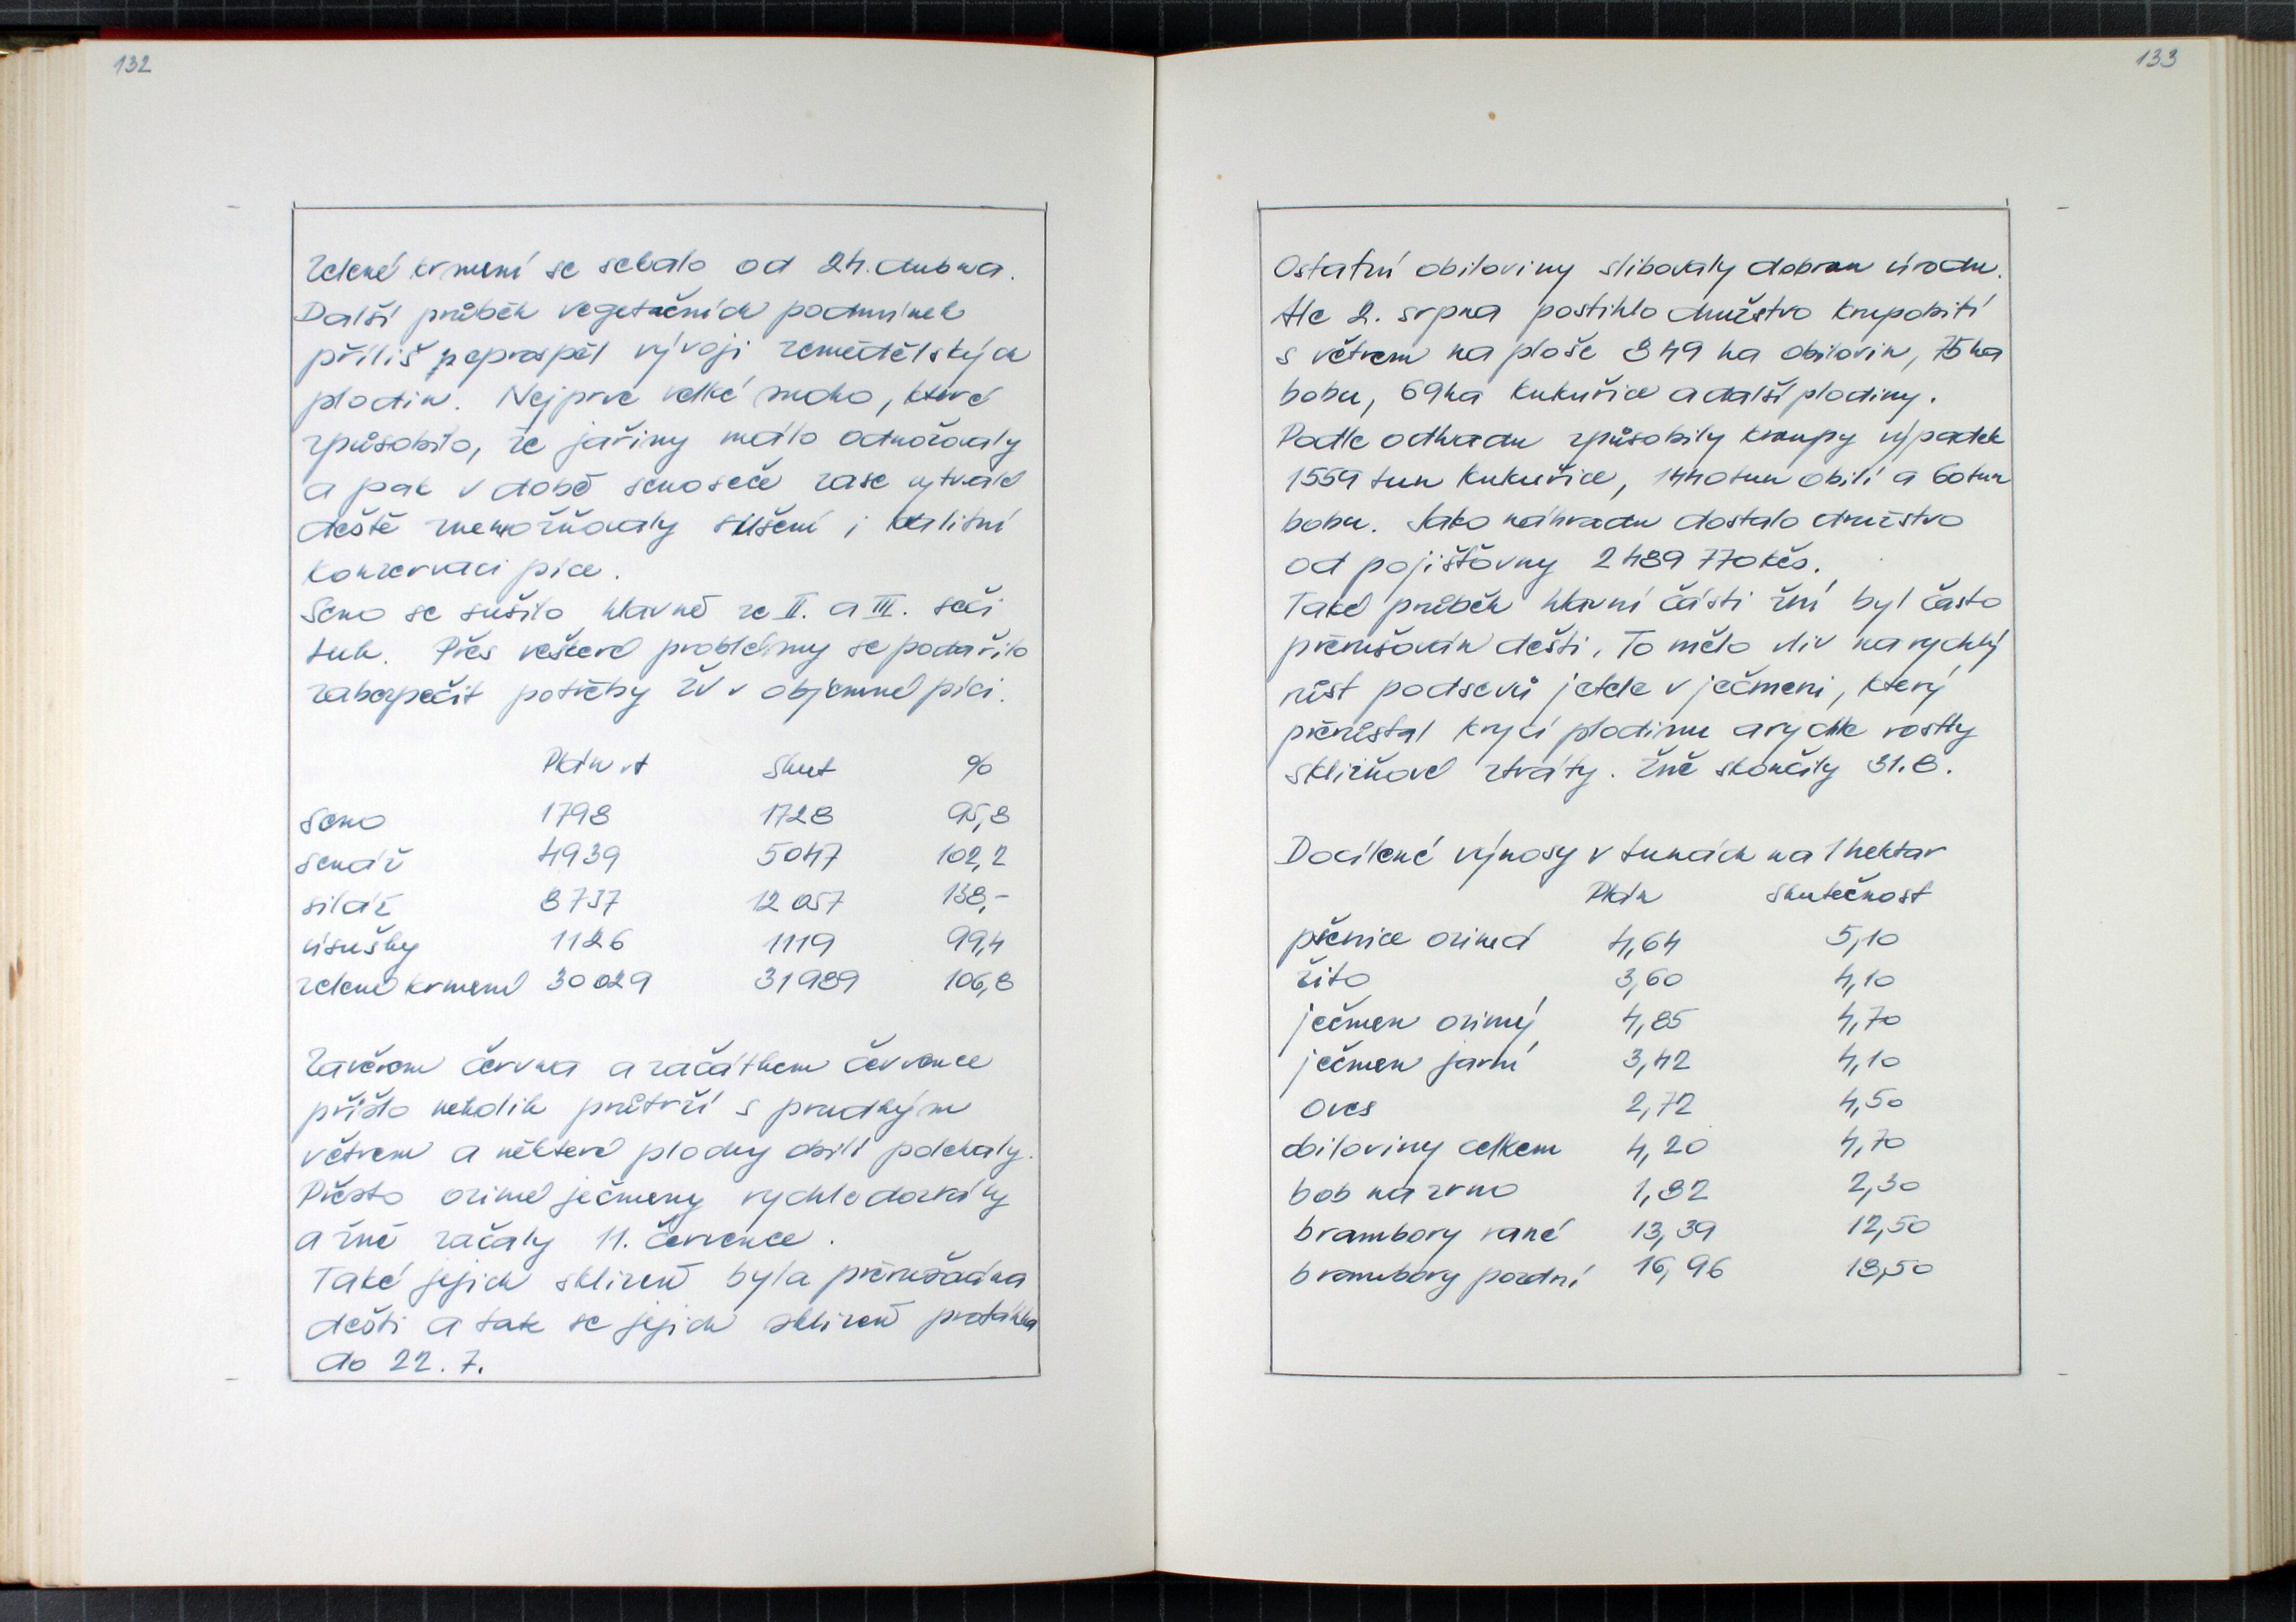 132
Zelené krmení se sebalo od 24. dubna.
Další průběh vegetačních podmínek
příliš neprospěl vývoji zemědělských
plodin. Nejprve velké sucho, které
způsobilo, že jařiny málo odnožovaly
a pak v době senoseče zase vytrvalé
deště znemožňovaly sušení i kvalitní
konzervaci píce.
Seno se sušilo hlavně ze II. a III. seči
luk. Přes veškeré problémy se podařilo
zabezpečit potřeby žv v objemné píci.
Plán vt Skut %
seno 1798 1728 95,8
senáž 4939 5047 102,2
siláž 8737 12 057 138,-
úsušky 1126 1119 99,4
zelené krmení 30 029 31 989 106,8
Závěrem června a začátkem července
přišlo několik průtrží s prudkým
větrem a některé plochy obilí polehaly.
Přesto ozimé ječmeny rychle dozrály
a žně začaly 11. července.
Také jejich sklizeň byla přerušována
dešti a tak se jejich sklizeň protáhla
do 22. 7.
133
Ostatní obiloviny slibovaly dobrou úrodu.
Ale 2. srpna postihlo družstvo krupobití
s větrem na ploše 849 ha obilovin, 75 ha
bobu, 69 ha kukuřice a další plodiny.
Podle odhadu způsobily kroupy výpadek
1559 tun kukuřice, 1440 tun obilí a 60 tun
bobu. Jako náhradu dostalo družstvo
od pojišťovny 2 489 770 kčs.
Také průběh hlavní části žní byl často
přerušován dešti. To mělo vliv na rychlý
růst podsevů jetele v ječmeni, který
přerůstal krycí plodinu a rychle rostly
sklizňové ztráty. Žně skončily 31. 8.
Docílené výnosy v tunách na 1 hektar
Plán skutečnost
pšenice ozimá 4,64 5,10
žito 3,60 4,10
ječmen ozimý 4,85 4,70
ječmen jarní 3,42 4,10
oves 2,72 4,50
obiloviny celkem 4,20 4,70
bob na zrno 1,82 2,30
brambory rané 13,39 12,50
brambory pozdní 16,96 18,50